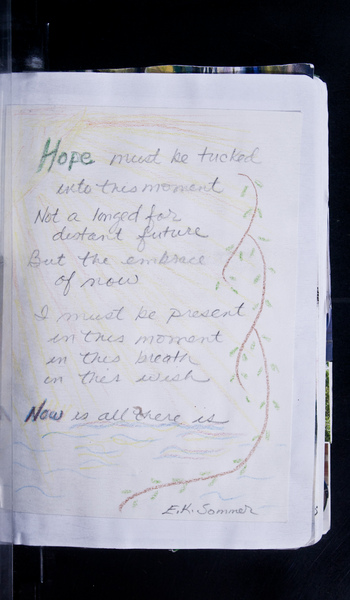 Hope must be tucked
into this moment
Not a longed for
distant future
But the embrace
of now
I must be present
in this moment
in this breath
in this wish
Now is all there is
E.K. Sommer